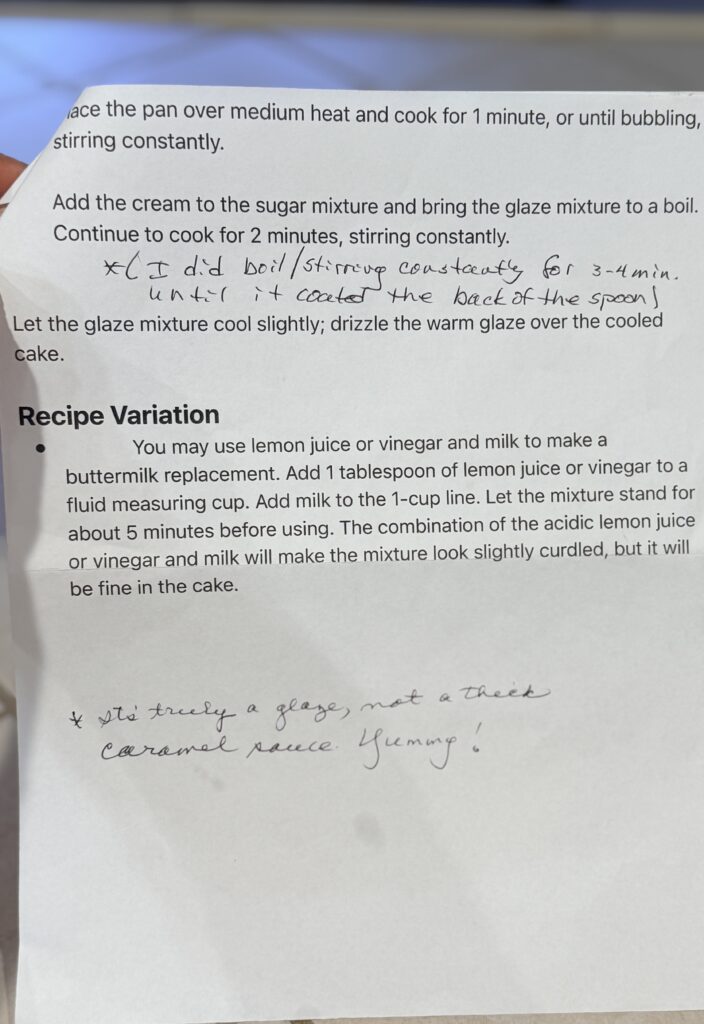 ace the pan over medium heat and cook for 1 minute, or until bubbling,
stirring constantly.
Add the cream to the sugar mixture and bring the glaze mixture to a boil.
Continue to cook for 2 minutes, stirring constantly.
*( I did boil/stirring constantly for 3-4 min.
until it coated the back of the spoon)
Let the glaze mixture cool slightly; drizzle the warm glaze over the cooled
cake.
Recipe Variation
• You may use lemon juice or vinegar and milk to make a
buttermilk replacement. Add 1 tablespoon of lemon juice or vinegar to a
fluid measuring cup. Add milk to the 1-cup line. Let the mixture stand for
about 5 minutes before using. The combination of the acidic lemon juice
or vinegar and milk will make the mixture look slightly curdled, but it will
be fine in the cake.
* It's truly a glaze, not a thick
caramel sauce. Yummy!